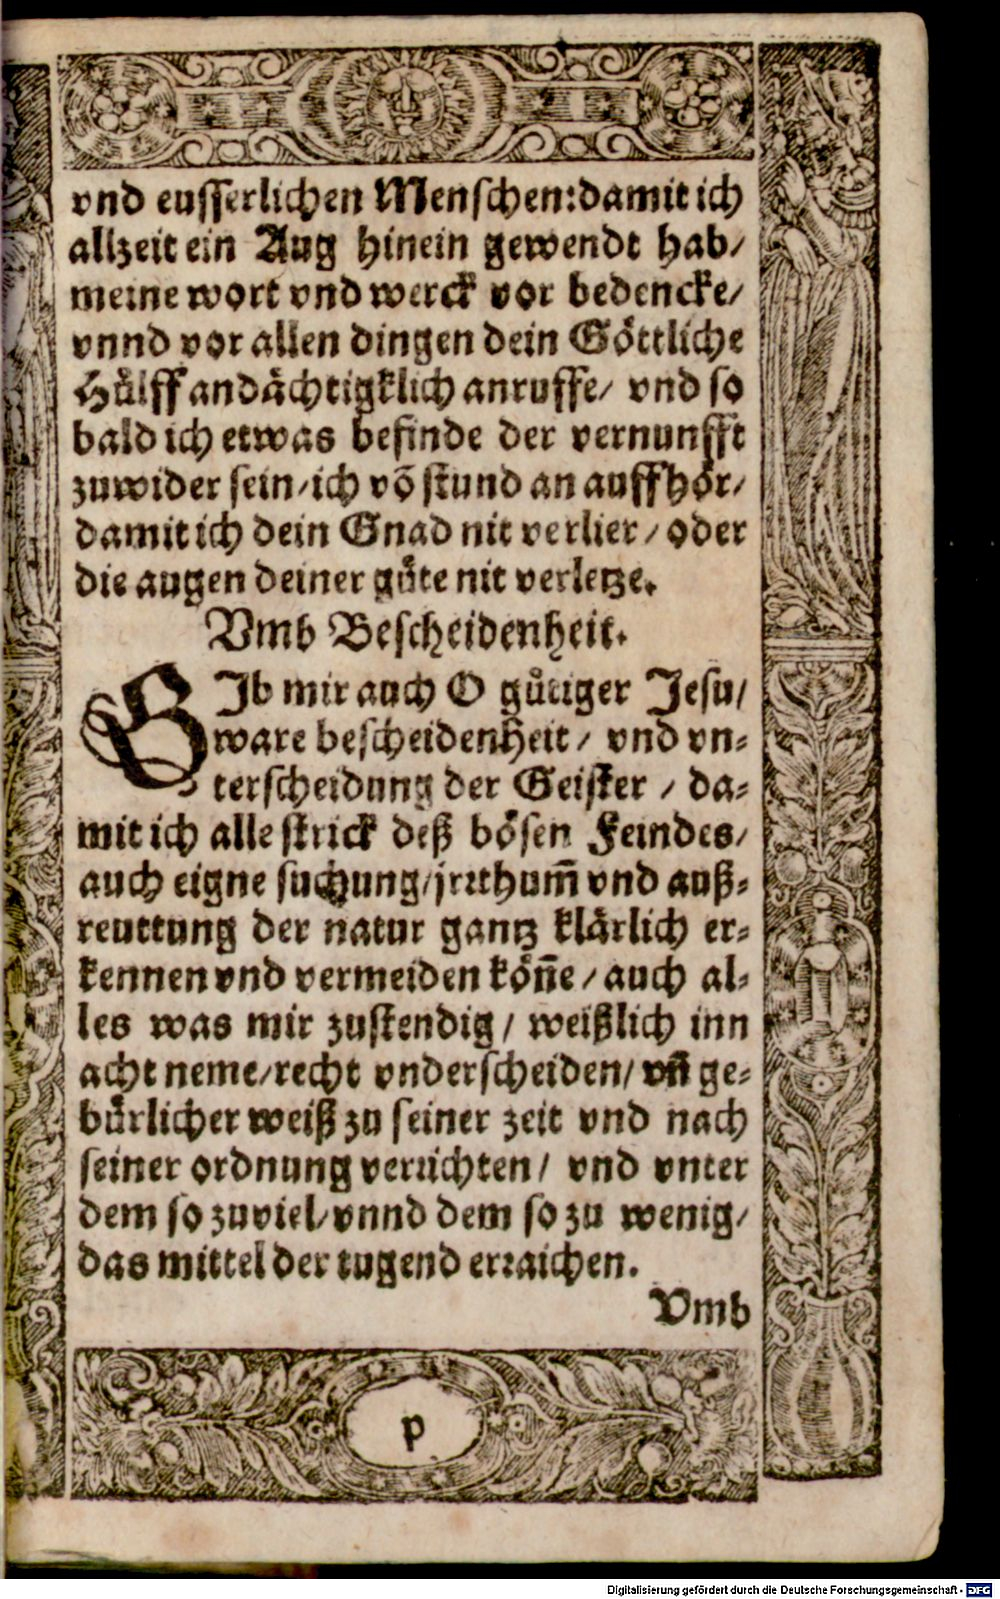 vnd eusserlichen Menschen: damit ich
allzeit ein Aug hinein gewendt hab/
meine wort vnd werck vor bedencke/
vnnd vor allen dingen dein Göttliche
Hülff andächtigklich anruffe/ vnd so
bald ich etwas befinde der vernunfft
zuwider sein/ ich võ stund an auffhör/
damit ich dein Gnad nit verlier/ oder
die augen deiner güte nit verletze.
Vmb Bescheidenheit.
GIb mir auch O gütiger Jesu/
ware bescheidenheit/ vnd vn-
terscheidung der Geister / da-
mit ich alle strick deß bösen Feindes/
auch eigne suchung/ jrrthum̃ vnd auß-
reuttung der natur gantz klärlich er-
kennen vnd vermeiden köñe/ auch al-
les was mir zustendig/ weißlich inn
acht neme/ recht vnderscheiden/ vñ ge-
bürlicher weiß zu seiner zeit vnd nach
seiner ordnung verrichten/ vnd vnter
dem so zuviel/ vnnd dem so zu wenig/
das mittel der tugend erraichen.
Vmb
p
Digitalisierung gefördert durch die Deutsche Forschungsgemeinschaft - DFG